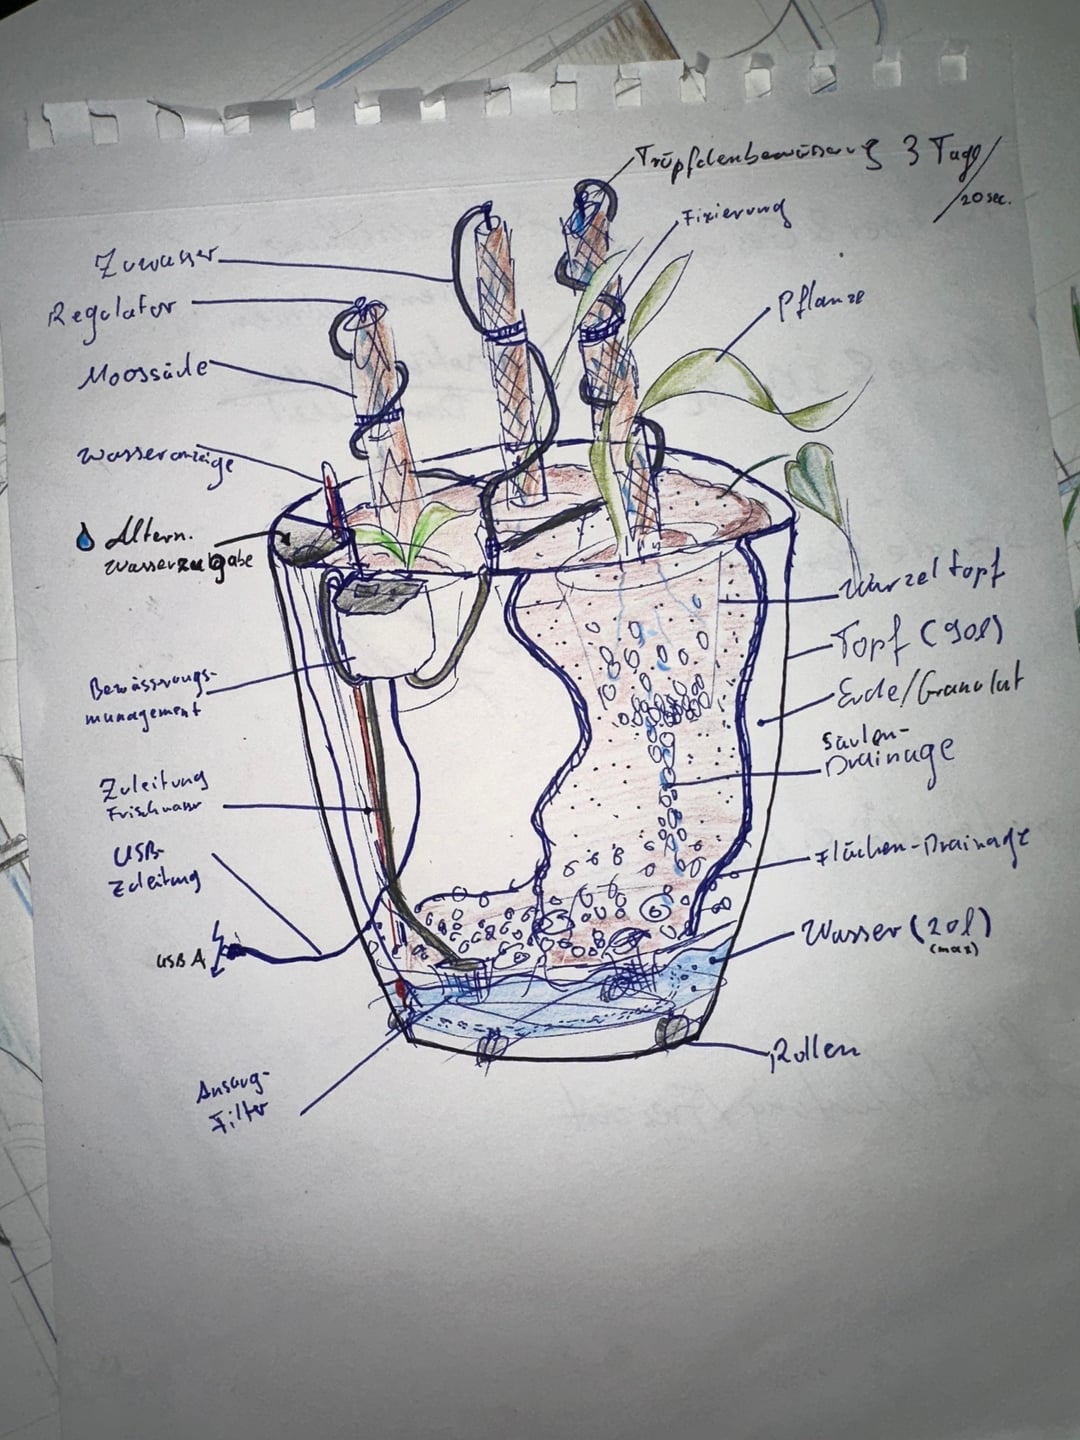 Tröpfchenbewässerung 3 Tage/
20sec.
Fixierung
Zuwasser
Regulator
Pflanze
Moossäule
Wasseranzeige
Altern.
Wasserzugabe
Wurzeltopf
Topf (90l)
Erde/Granulat
Säulen-
Drainage
Bewässerungs-
management
Zuleitung
Frischwasser
USB-
Zuleitung
Flächen-Drainage
USB A
Wasser (20l)
(max)
Rollen
Ansaug-
Filter